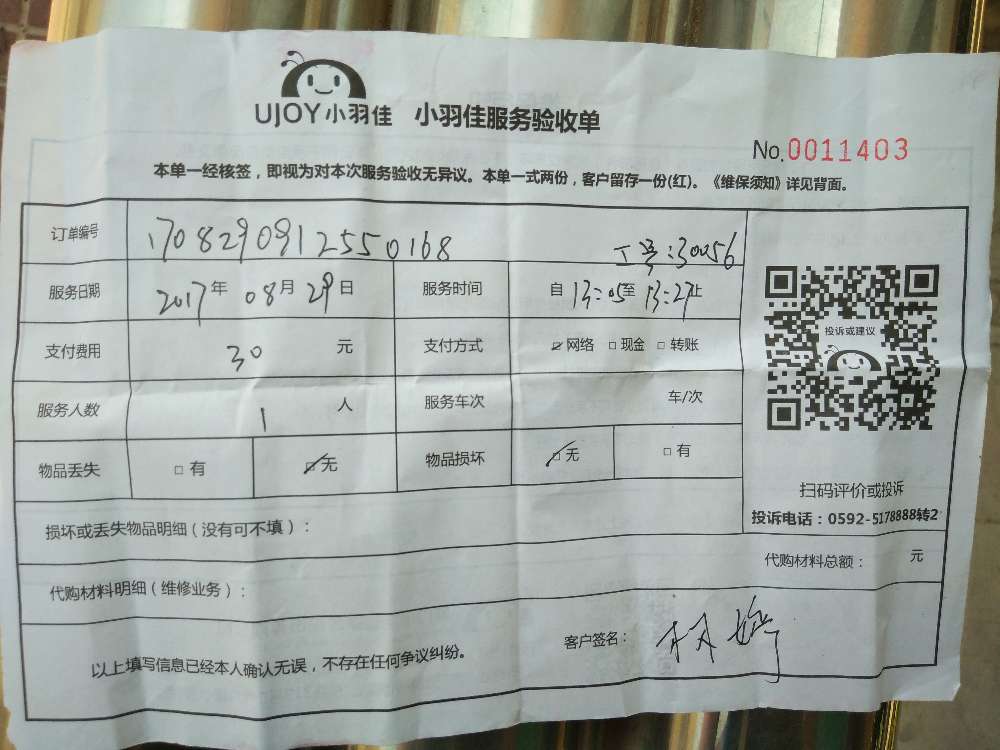 UJOY小羽佳 小羽佳服务验收单
No.0011403
本单一经核签，即视为对本次服务验收无异议。本单一式两份，客户留存一份(红)。《维保须知》详见背面。
订单编号 1708290912550168 工号:30056
服务日期 2017年08月29日 服务时间 自13:05至13:27止
支付费用 30 元 支付方式 ☑网络 □现金 □转账
投诉或建议
服务人数 1 人 服务车次 车/次
物品丢失 □有 ☑无 物品损坏 ☑无 □有
扫码评价或投诉
投诉电话：0592-5178888转2
损坏或丢失物品明细（没有可不填）：
代购材料明细（维修业务）： 代购材料总额： 元
以上填写信息已经本人确认无误，不存在任何争议纠纷。 客户签名：